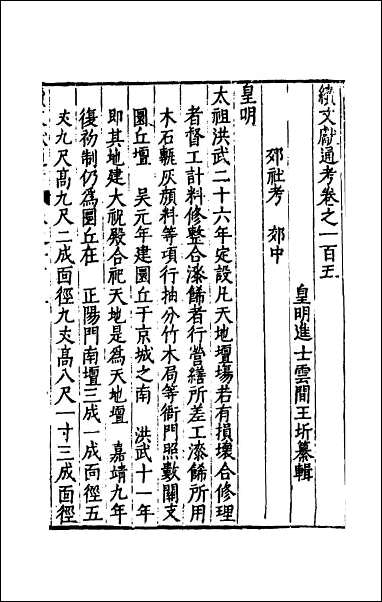 續文獻通考卷之一百五
皇明進士雲間王圻纂輯
郊社考 郊中
皇明
太祖洪武二十六年定設凡天地壇場若有損壞合修理
者督工計料修整合漆餙者行營繕所差工漆餙所用
木石甎灰顔料等項行抽分竹木局等衙門照數關支
圜丘壇 吳元年建圜丘于京城之南 洪武十一年
即其地建大祀殿合祀天地是爲天地壇 嘉靖九年
復初制仍爲圜丘在 正陽門南壇三成一成面徑五
丈九尺高九尺二成面徑九丈高八尺一寸三成面徑